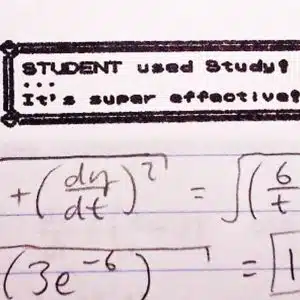 STUDENT used Study!
...
It's super effective!
+(dy/dt)² = √(6/t
(3e⁻⁶) = 1